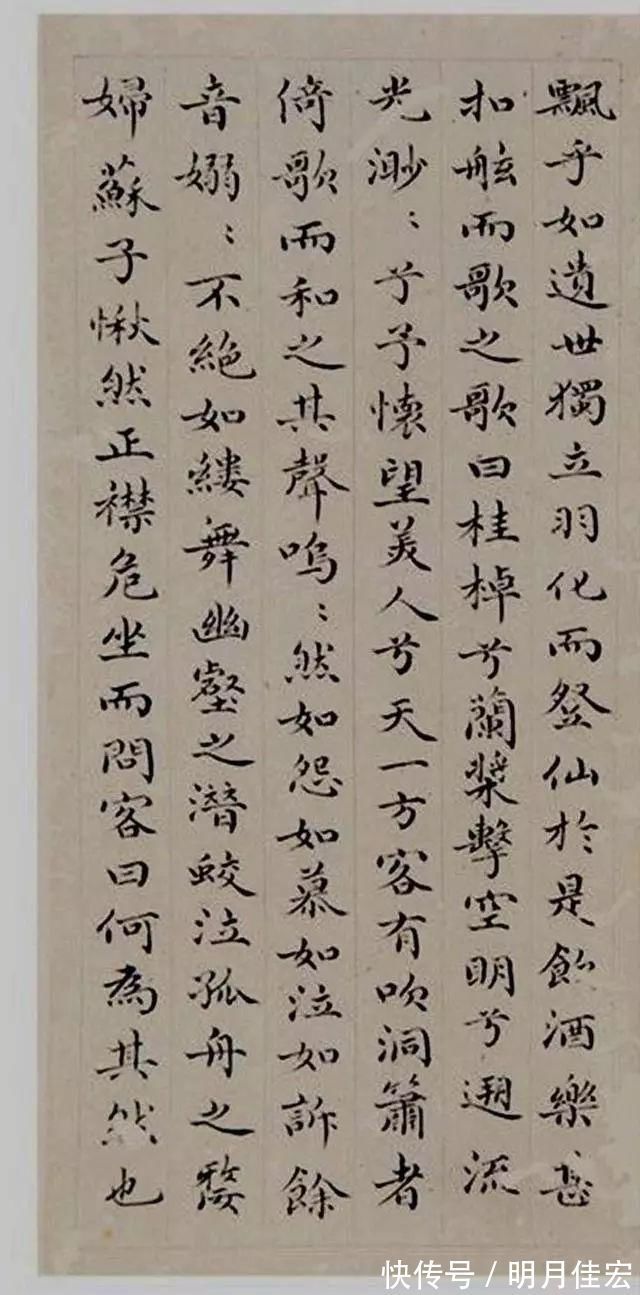 飄乎如遺世獨立羽化而登仙於是飲酒樂甚
扣舷而歌之歌曰桂棹兮蘭槳擊空明兮遡流
光渺〻兮予懷望美人兮天一方客有吹洞簫者
倚歌而和之其聲嗚〻然如怨如慕如泣如訴餘
音嫋〻不絕如縷舞幽壑之潛蛟泣孤舟之嫠
婦蘇子愀然正襟危坐而問客曰何為其然也
快传号/明月佳宏